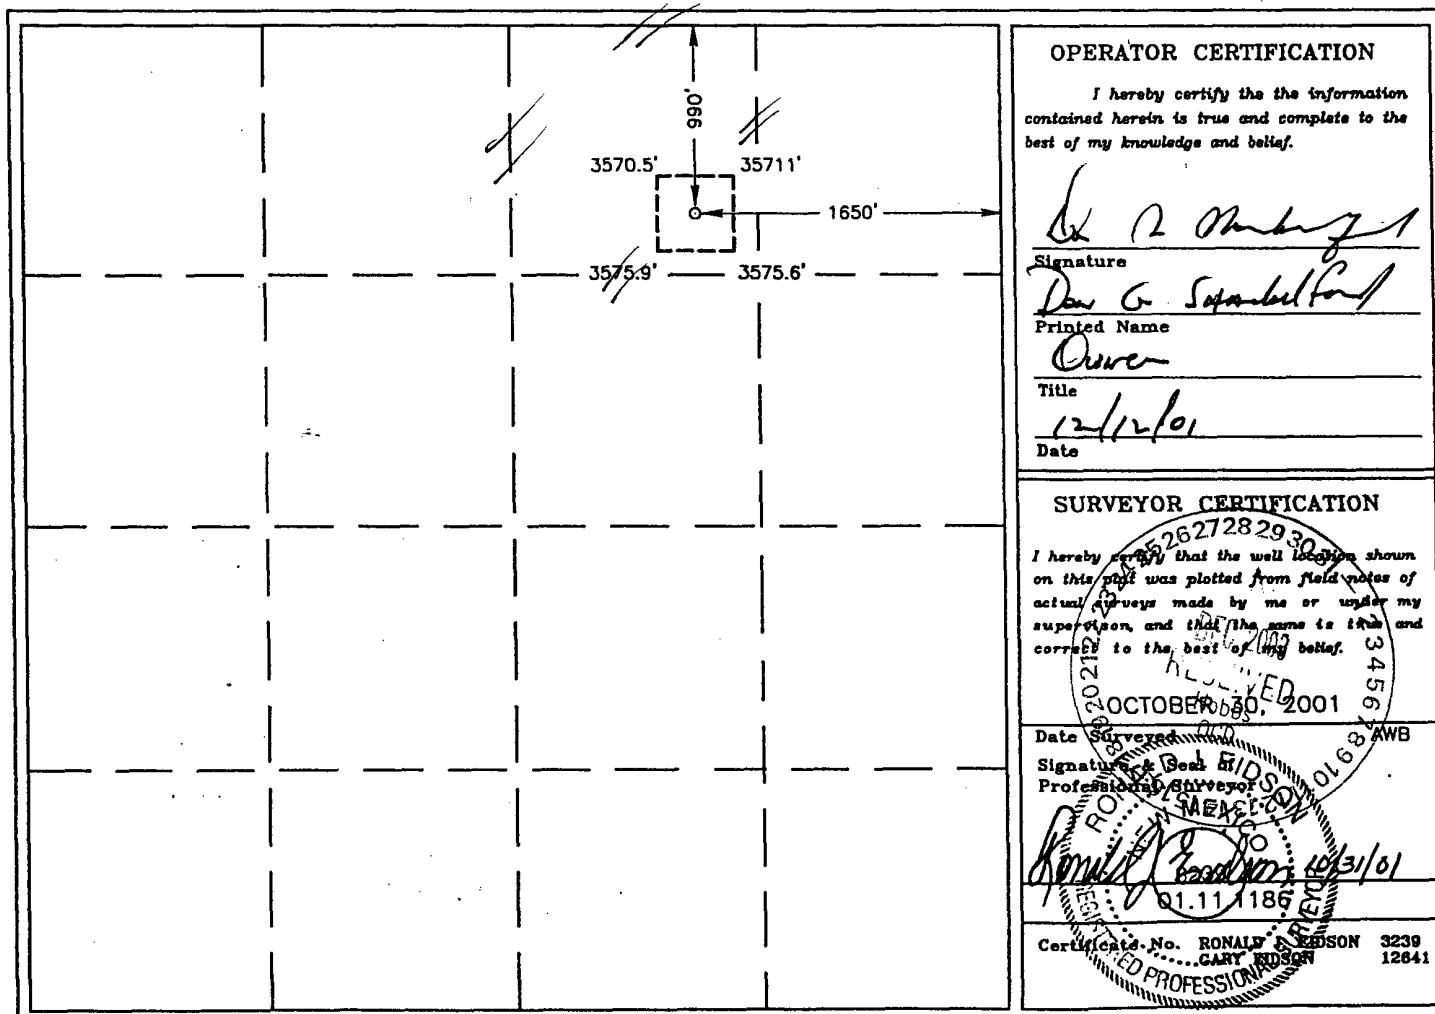 990'
3570.5'
35711'
1650'
3575.9'
3575.6'
OPERATOR CERTIFICATION
I hereby certify the the information
contained herein is true and complete to the
best of my knowledge and belief.
Signature
Printed Name
Owner
Title
12/12/01
Date
SURVEYOR CERTIFICATION
I hereby certify that the well location shown
on this plat was plotted from field notes of
actual surveys made by me or under my
supervison, and that the same is true and
correct to the best of my belief.
DEC 2003
RECEIVED
Hobbs
OCD
OCTOBER 30, 2001
Date Surveyed AWB
Signature & Seal of
Professional Surveyor
RONALD J. EIDSON
NEW MEXICO
3239
REGISTERED PROFESSIONAL SURVEYOR
10/31/01
01.11.1186
Certificate No. RONALD J. EIDSON 3239
GARY EIDSON 12641